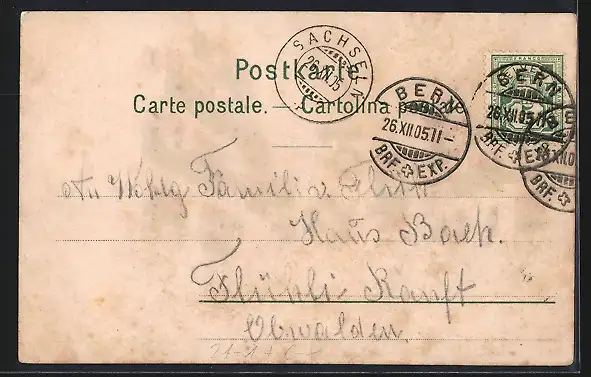 Postkarte
Carte postale. — Cartolina postale
SACHSELN
26.XII.05
BERN
26.XII.05.11-
BRF. EXP.
BERN
26.XII.05.11-
BRF. EXP.
BRF.
FRANCO
An Wohlg Familie v. Flüh
Haus Bach.
Flühli Ranft
Obwalden